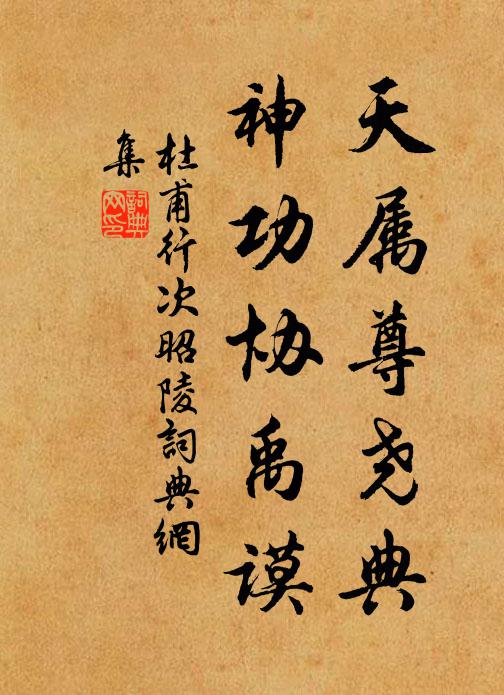 天属尊尧典
神功协禹谟
杜甫行次昭陵詞典網
集
詞典网印